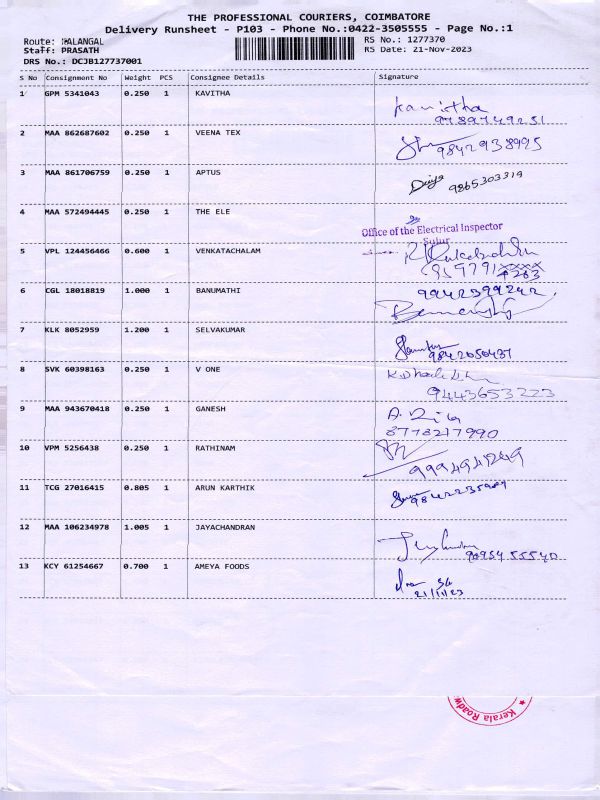 THE PROFESSIONAL COURIERS, COIMBATORE
Delivery Runsheet - P103 - Phone No.:0422-3505555 - Page No.:1
Route: KALANGAL
RS No.: 1277370
Staff: PRASATH
RS Date: 21-Nov-2023
DRS No.: DCJB127737001
S No Consignment No Weight PCS Consignee Details Signature
1 GPM 5341043 0.250 1 KAVITHA kavitha
9789749251
2 MAA 862687602 0.250 1 VEENA TEX 9842938995
3 MAA 861706759 0.250 1 APTUS Divya 9865303319
4 MAA 572494445 0.250 1 THE ELE
Office of the Electrical Inspector
Sulur
5 VPL 124456466 0.600 1 VENKATACHALAM
6 CGL 18018819 1.000 1 BANUMATHI 9942399242
7 KLK 8052959 1.200 1 SELVAKUMAR
9842050437
8 SVK 60398163 0.250 1 V ONE
9443653223
9 MAA 943670418 0.250 1 GANESH
8778217990
10 VPM 5256438 0.250 1 RATHINAM
11 TCG 27016415 0.805 1 ARUN KARTHIK
12 MAA 106234978 1.005 1 JAYACHANDRAN
90954 55540
13 KCY 61254667 0.700 1 AMEYA FOODS
21/11/23
Kerala Roadw